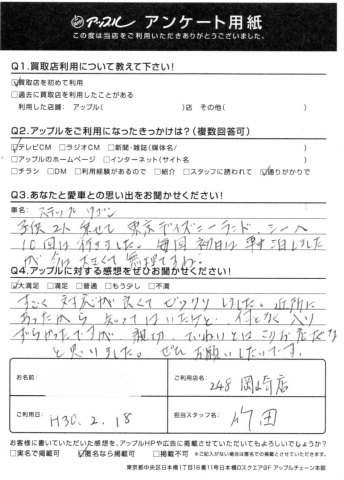 アップル アンケート用紙
この度は当店をご利用いただきありがとうございました。
Q1.買取店利用について教えて下さい!
☑買取店を初めて利用
□過去に買取店を利用したことがある
利用した店舗: アップル( )店 その他( )
Q2.アップルをご利用になったきっかけは?(複数回答可)
☑テレビCM □ラジオCM □新聞・雑誌(媒体名/ )
□アップルのホームページ □インターネット(サイト名 )
□チラシ □DM □利用経験があるので □紹介 □スタッフに誘われて ☑通りがかりで
Q3.あなたと愛車との思い出をお聞かせください!
車名: ステップワゴン
子供2人乗せて 東京ディズニーランド、シーへ
10回は行きました。毎回初日は車泊しました
が 今は大きくて無理ですね。
Q4.アップルに対する感想をぜひお聞かせください!
☑大満足 □満足 □普通 □もう少し □不満
すごく 対応が良くてビックリしました。近所に
あったから 知ってはいたけど、何となく入り
ずらかったですが、親切、ていねいとは
と思いました。ぜひ お願いしたいです。
お名前:
ご利用店名:
248 岡崎店
ご利用日:
H30.2.18
担当スタッフ名:
竹田
お客様に書いていただいた感想を、アップルHPや広告に掲載させていただいてもよろしいでしょうか?
□実名で掲載可 ☑匿名なら掲載可 □掲載不可 ※ご記入がない場合は匿名での掲載とさせていただきます。
東京都中央区日本橋1丁目16番11号日本橋Dスクエア9F アップルチェーン本部